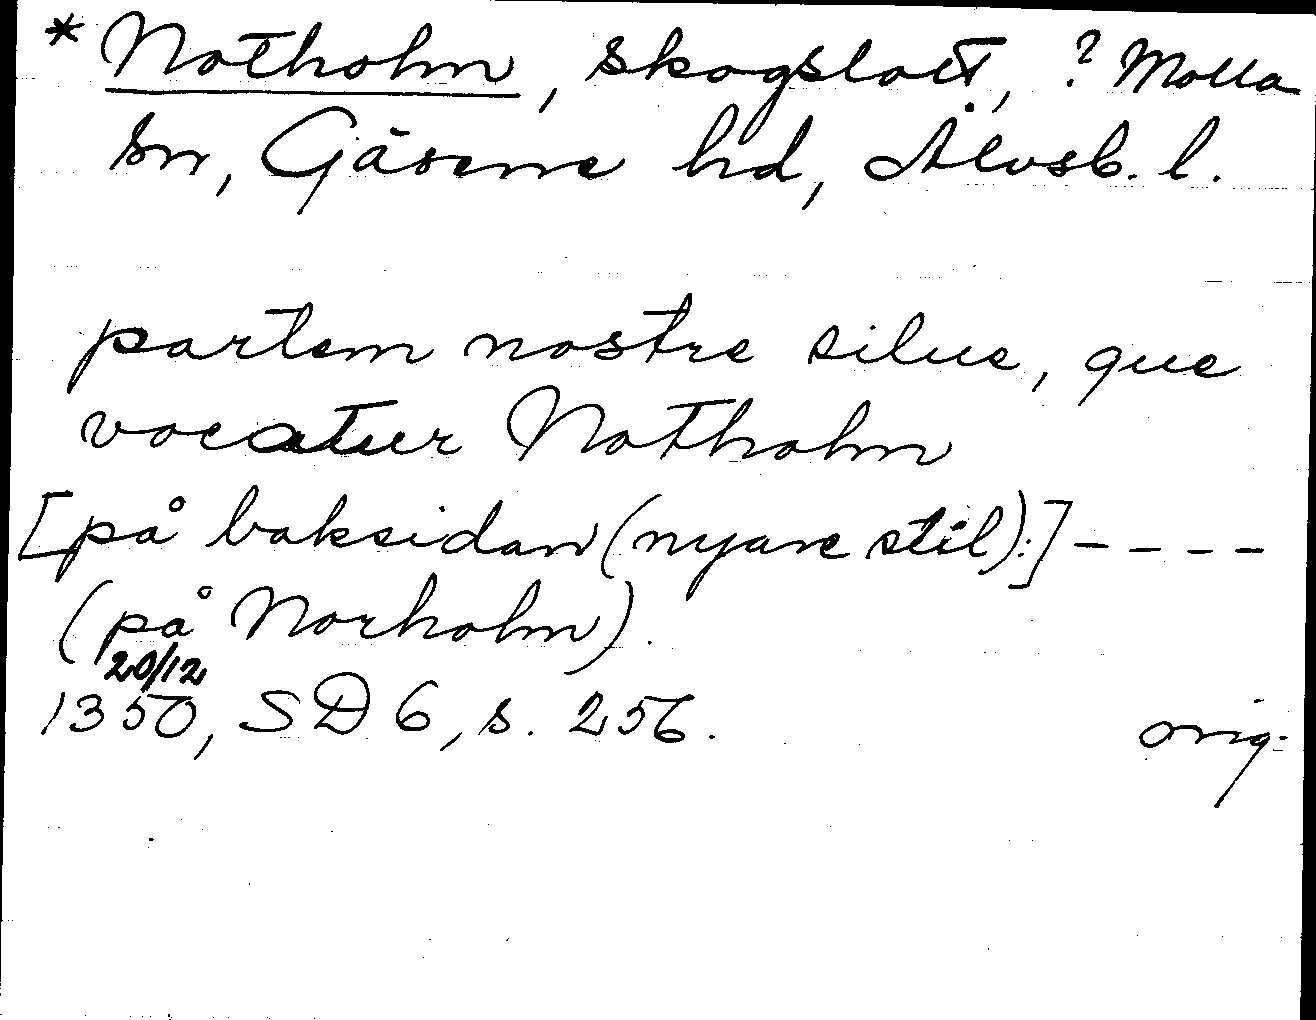 * Notholm, skogslott, ? Molla
sn, Gäsene hd, Älvsb. l.
partem nostre silue, que
vocatur Notholm
[på baksidan (nyare stil):] - - - -
(på Norholm).
20/12
1350, SD 6, s. 256.
orig.